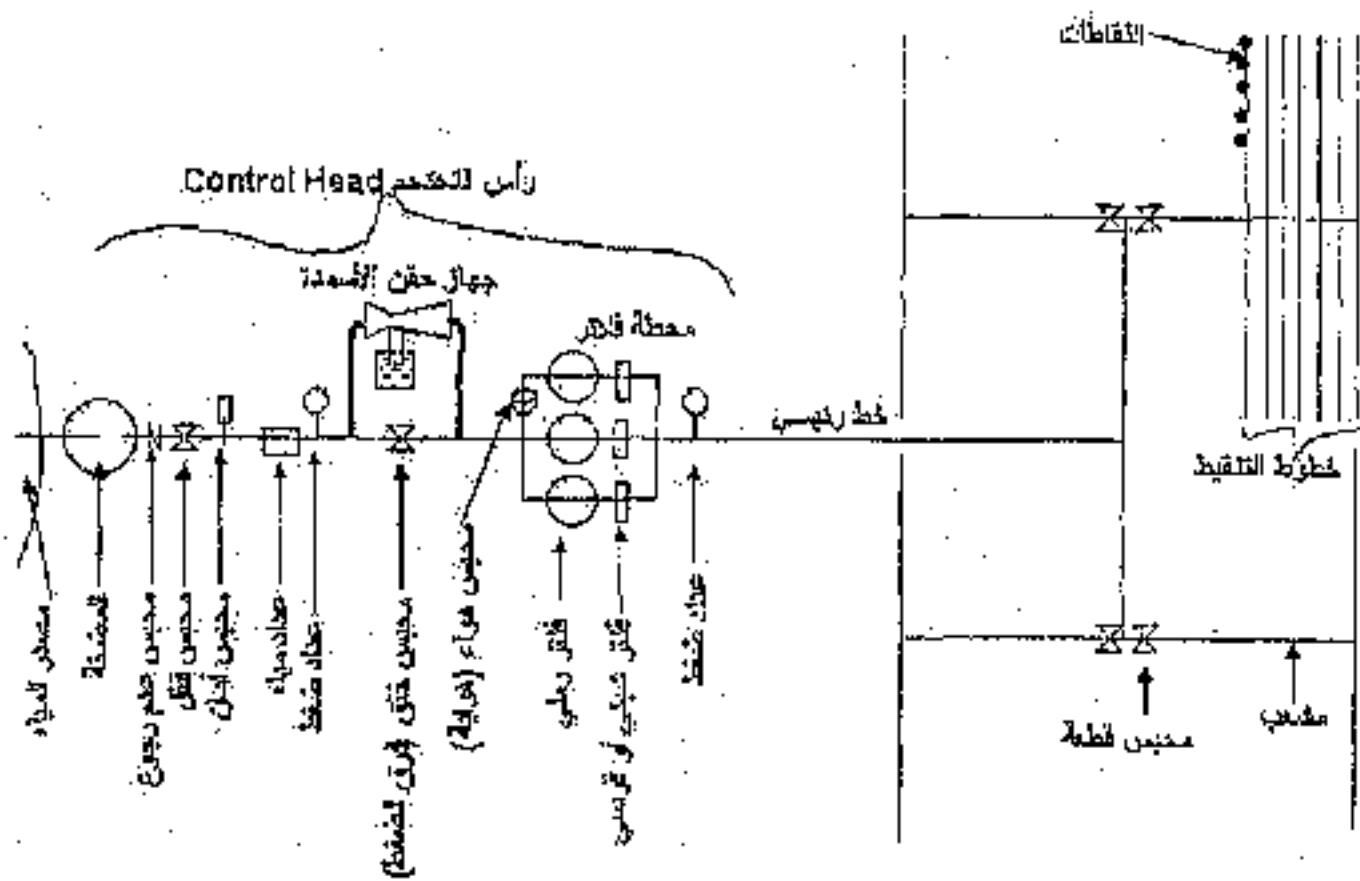 النقاطات
رأس التحكم Control Head
جهاز حقن الأسمدة
محطة فلاتر
خط رئيسي
خطوط التنقيط
مصدر المياه
المضخة
محبس عدم رجوع
محبس قفل
محبس أمان
عداد مياه
عداد ضغط
محبس خنق (فرق الضغط)
محبس هواء (هواية)
فلتر رملي
فلتر شبكي أو قرصي
عداد ضغط
محبس قطعة
مشعب